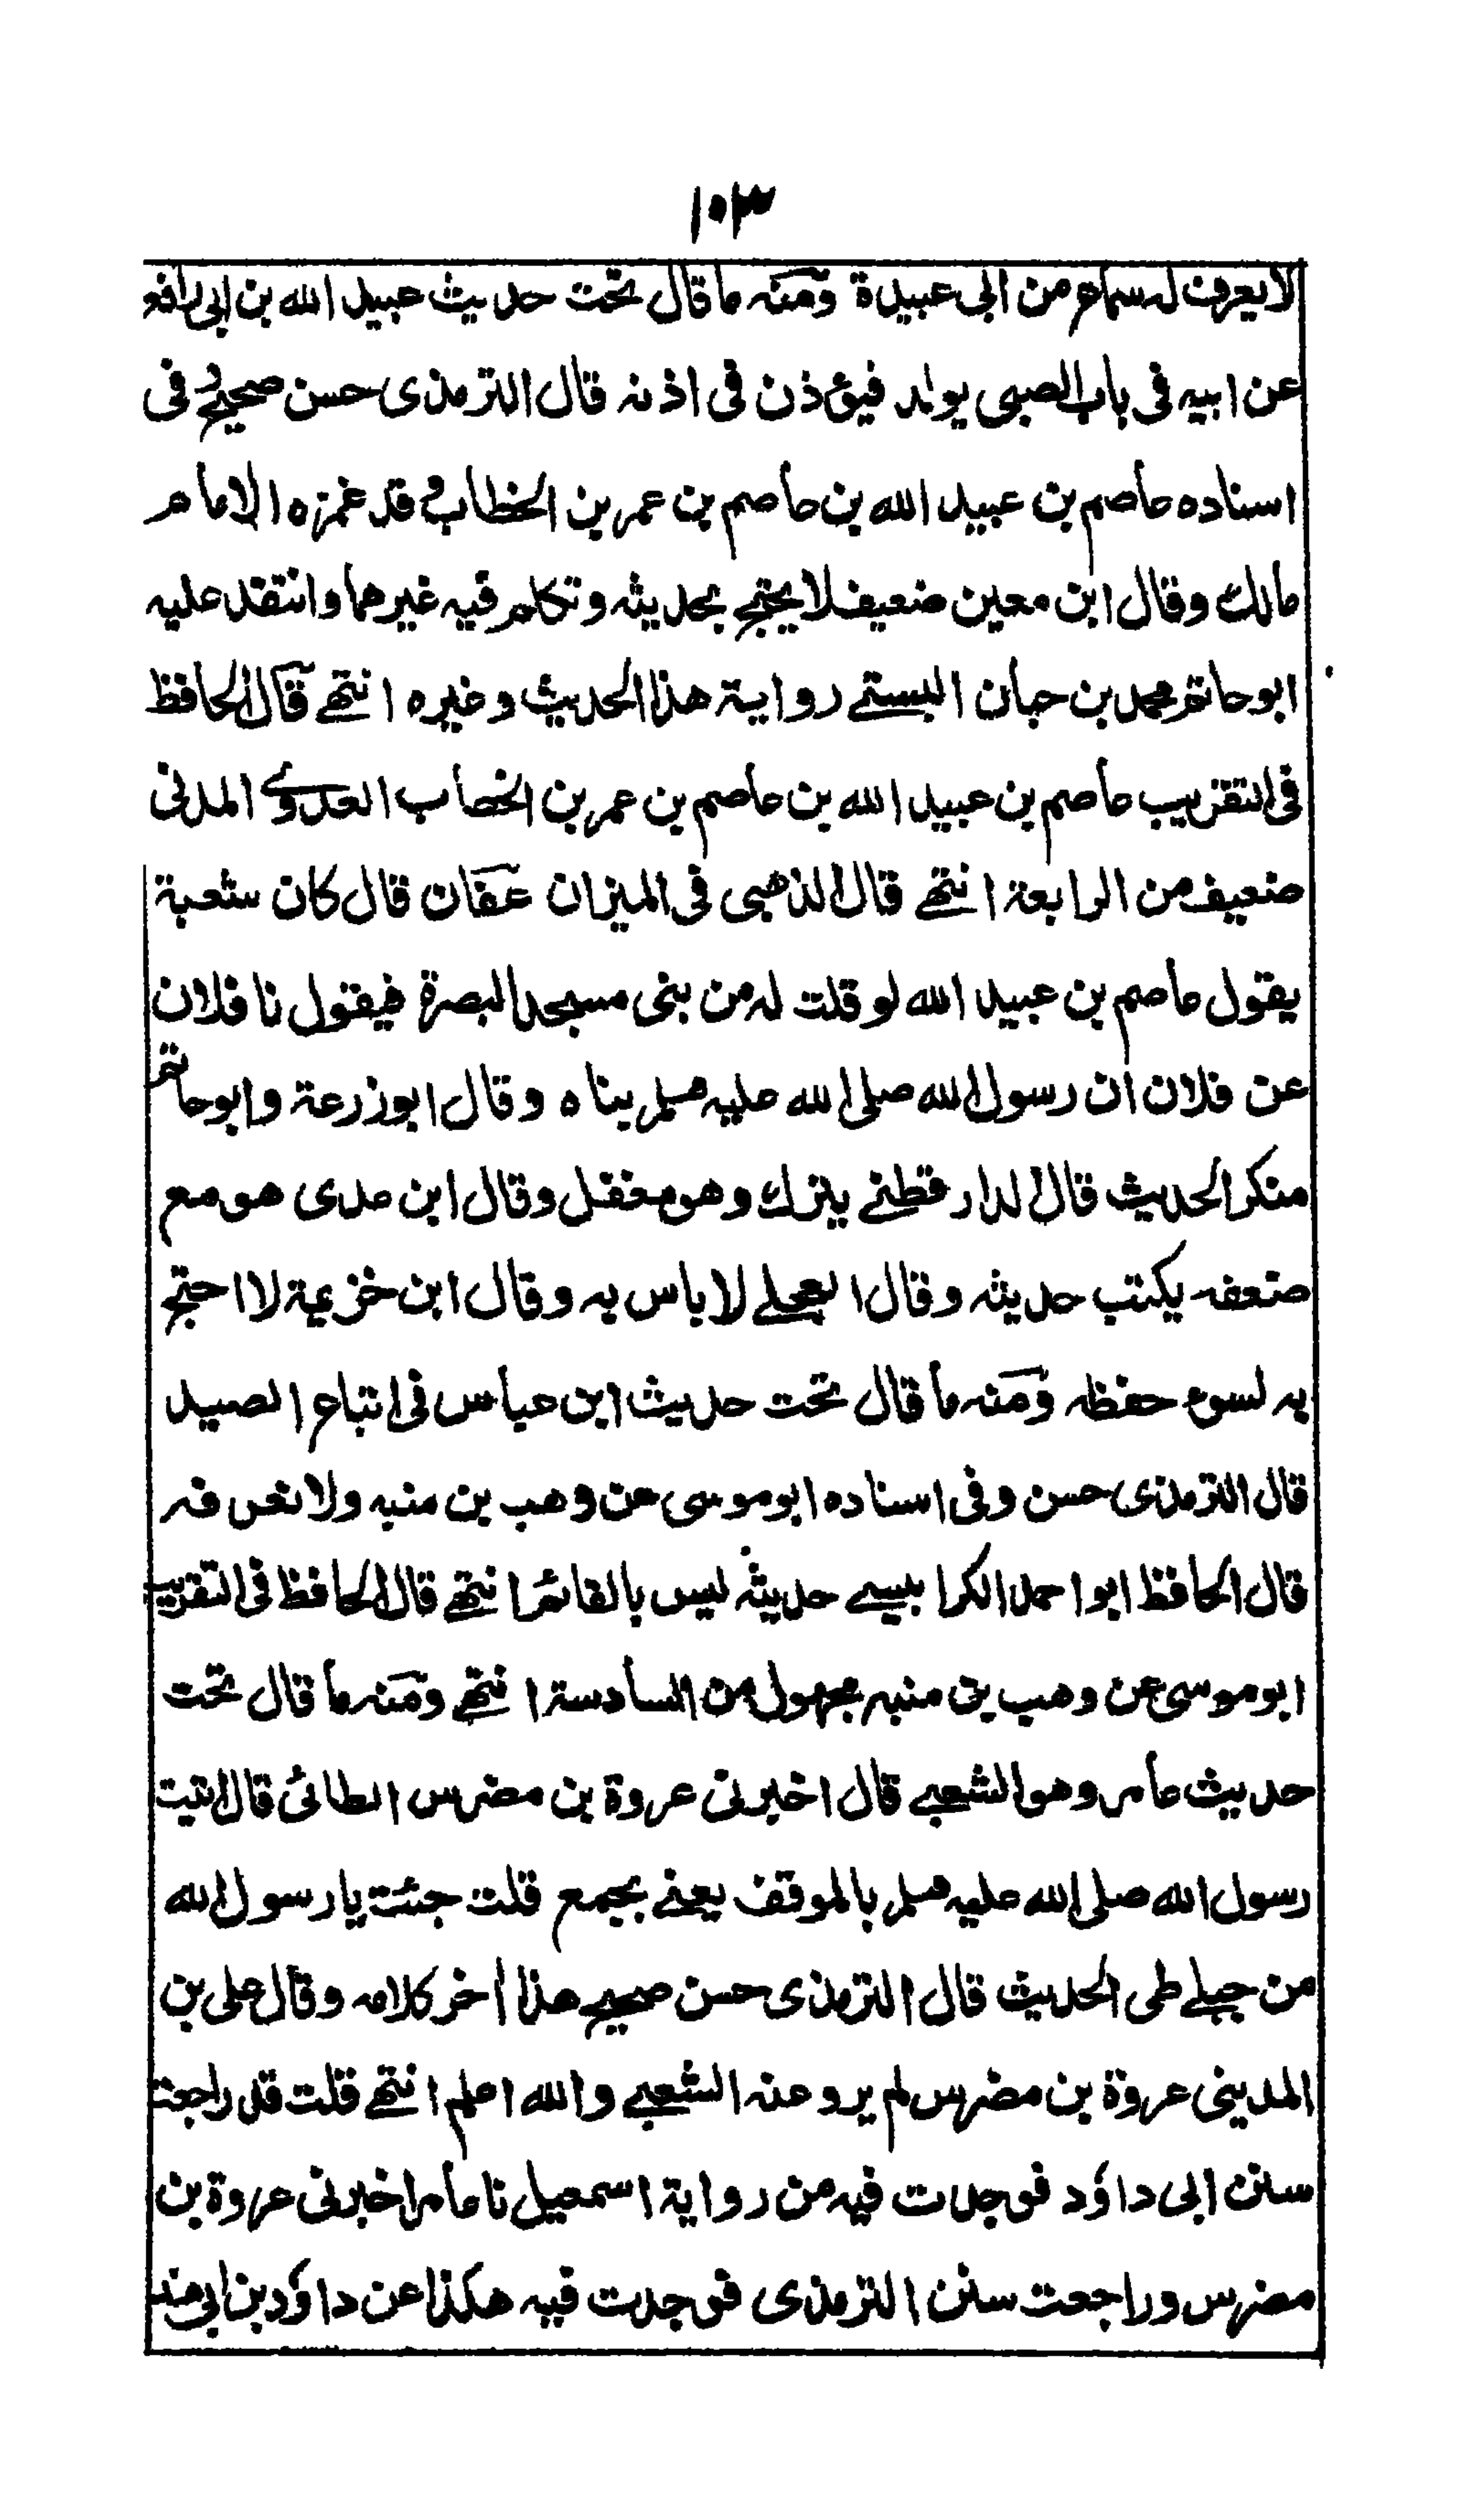 ١٠٣
لا يعرف له سماع من ابى عبيدة ومنه ما قال تحت حديث عبيد الله بن ابى رافع
عن ابيه فى باب الصبى يولد فيؤذن فى اذنه قال الترمذى حسن صحيح وفى
اسناده عاصم بن عبيد الله بن عاصم بن عمر بن الخطاب وقد غمزه الامام
مالك وقال ابن معين ضعيف لا يحتج بحديثه وتكلم فيه غيرهما وانتقد عليه
ابو حاتم محمد بن حبان البستے رواية هذا الحديث وغيره انتهے قال الحافظ
فى التقريب عاصم بن عبيد الله بن عاصم بن عمر بن الخطاب العدوے المدنى
ضعيف من الرابعة انتهے قال الذهبى فى الميزان عفان قال كان شعبة
يقول عاصم بن عبيد الله لو قلت له من بنى مسجد البصرة فيقول نا فلان
عن فلان ان رسول الله صلى الله عليه وسلم بناه وقال ابو زرعة وابو حاتم
منكر الحديث قال الدارقطنے يترك وهو مغفل وقال ابن عدى هو مع
ضعفه يكتب حديثه وقال العجلے لا باس به وقال ابن خزيمة لا احتج
به لسوء حفظه ومنه ما قال تحت حديث ابن عباس فى اتباع الصيد
قال الترمذى حسن وفى اسناده ابو موسى عن وهب بن منبه ولا نعرفه
قال الحافظ ابو احمد الكرابيسے حديثه ليس بالقائم انتهے قال الحافظ فى التقريب
ابو موسى عن وهب بن منبه مجهول من السادسة انتهے ومنه ما قال تحت
حديث عامر وهو الشعبے قال اخبرنى عروة بن مضرس الطائى قال اتيت
رسول الله صلى الله عليه وسلم بالموقف يعنے بجمع قلت جئت يا رسول الله
من جبلے طى الحديث قال الترمذى حسن صحيح هذا اخر كلامه وقال على بن
المدينى عروة بن مضرس لم يرو عنه الشعبے والله اعلم انتهے قلت قد راجعت
سنن ابى داؤد فوجدت فيه من رواية اسمعيل نا عامر اخبرنى عروة بن
مضرس وراجعت سنن الترمذى فوجدت فيه هكذا عن داؤد بن ابى هند